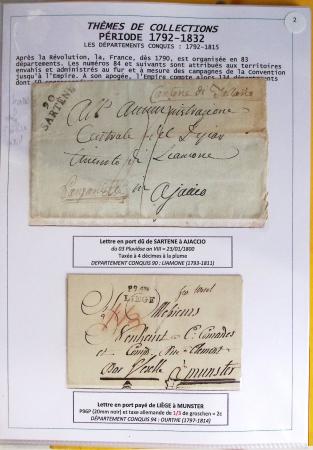 2
THÈMES DE COLLECTIONS
PÉRIODE 1792-1832
LES DÉPARTEMENTS CONQUIS : 1792-1815
Après la Révolution, la, France, dès 1790, est organisée en 83
départements. Les numéros 84 et suivants sont attribués aux territoires
envahis et administrés au fur et à mesure des campagnes de la Convention
jusqu'à l'Empire. A son apogée, l'Empire compte alors 134 départements
90
SARTENE
Amministrazione
Centrale del
di Liamone
in
Ajaccio
Lettre en port dû de SARTENE à AJACCIO
du 03 Pluviôse an VIII = 23/01/1800
Taxée à 4 décimes à la plume
DEPARTEMENT CONQUIS 90 : LIAMONE (1793-1811)
P94P
LIEGE
Messieurs
et Comp. Rue Clement
Par Weselle
à munster
Lettre en port payé de LIÈGE à MUNSTER
P96P (20mm noir) et taxe allemande de 1/3 de groschen = 2c
DÉPARTEMENT CONQUIS 94 : OURTHE (1797-1814)